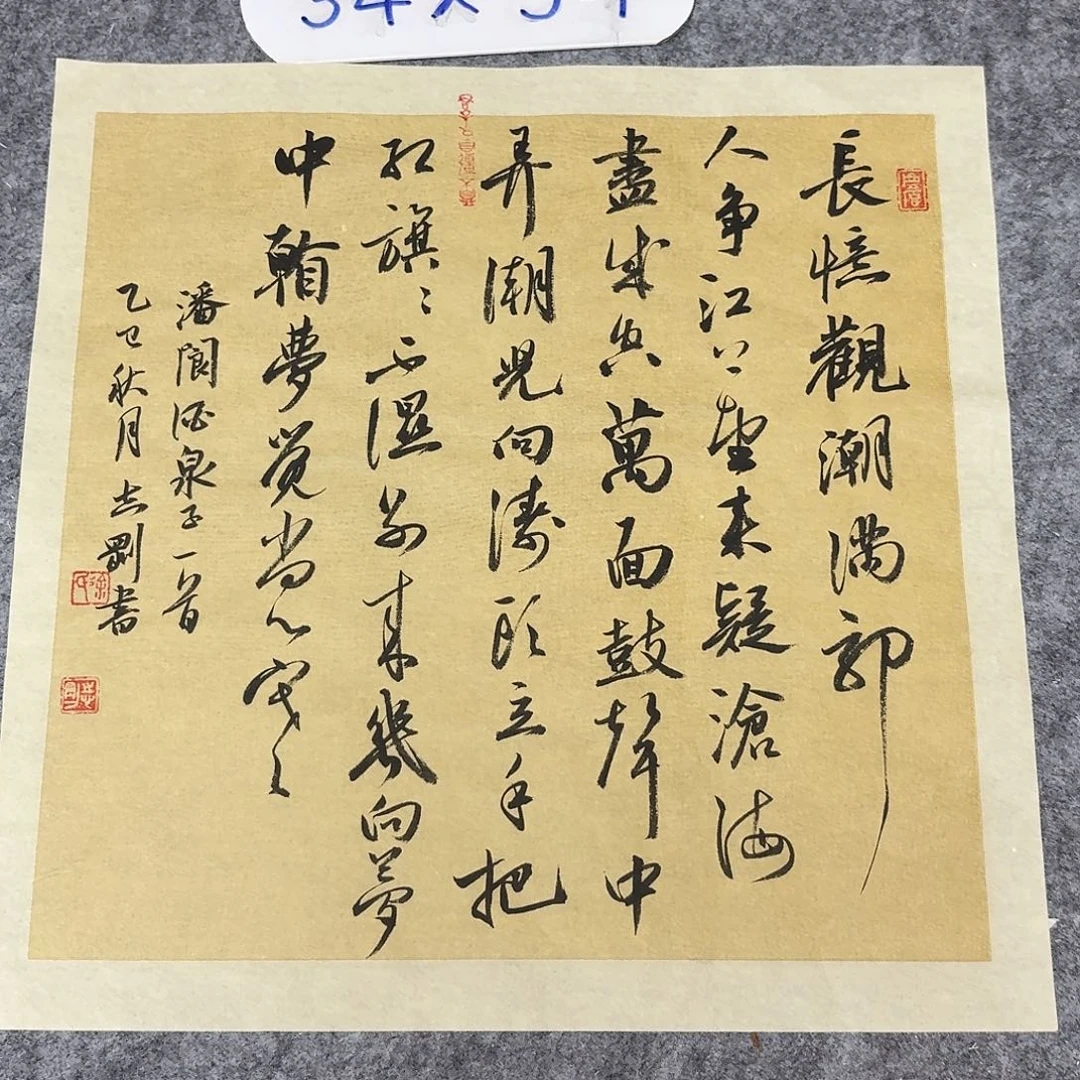 長憶觀潮滿郭
人争江上望来疑滄海
盡成空萬面鼓聲中
弄潮兒向濤頭立手把
红旗〻不濕别來幾向夢
中看夢覺尚心寒
潘閬酒泉子一首
乙巳秋月志剛書
徐氏